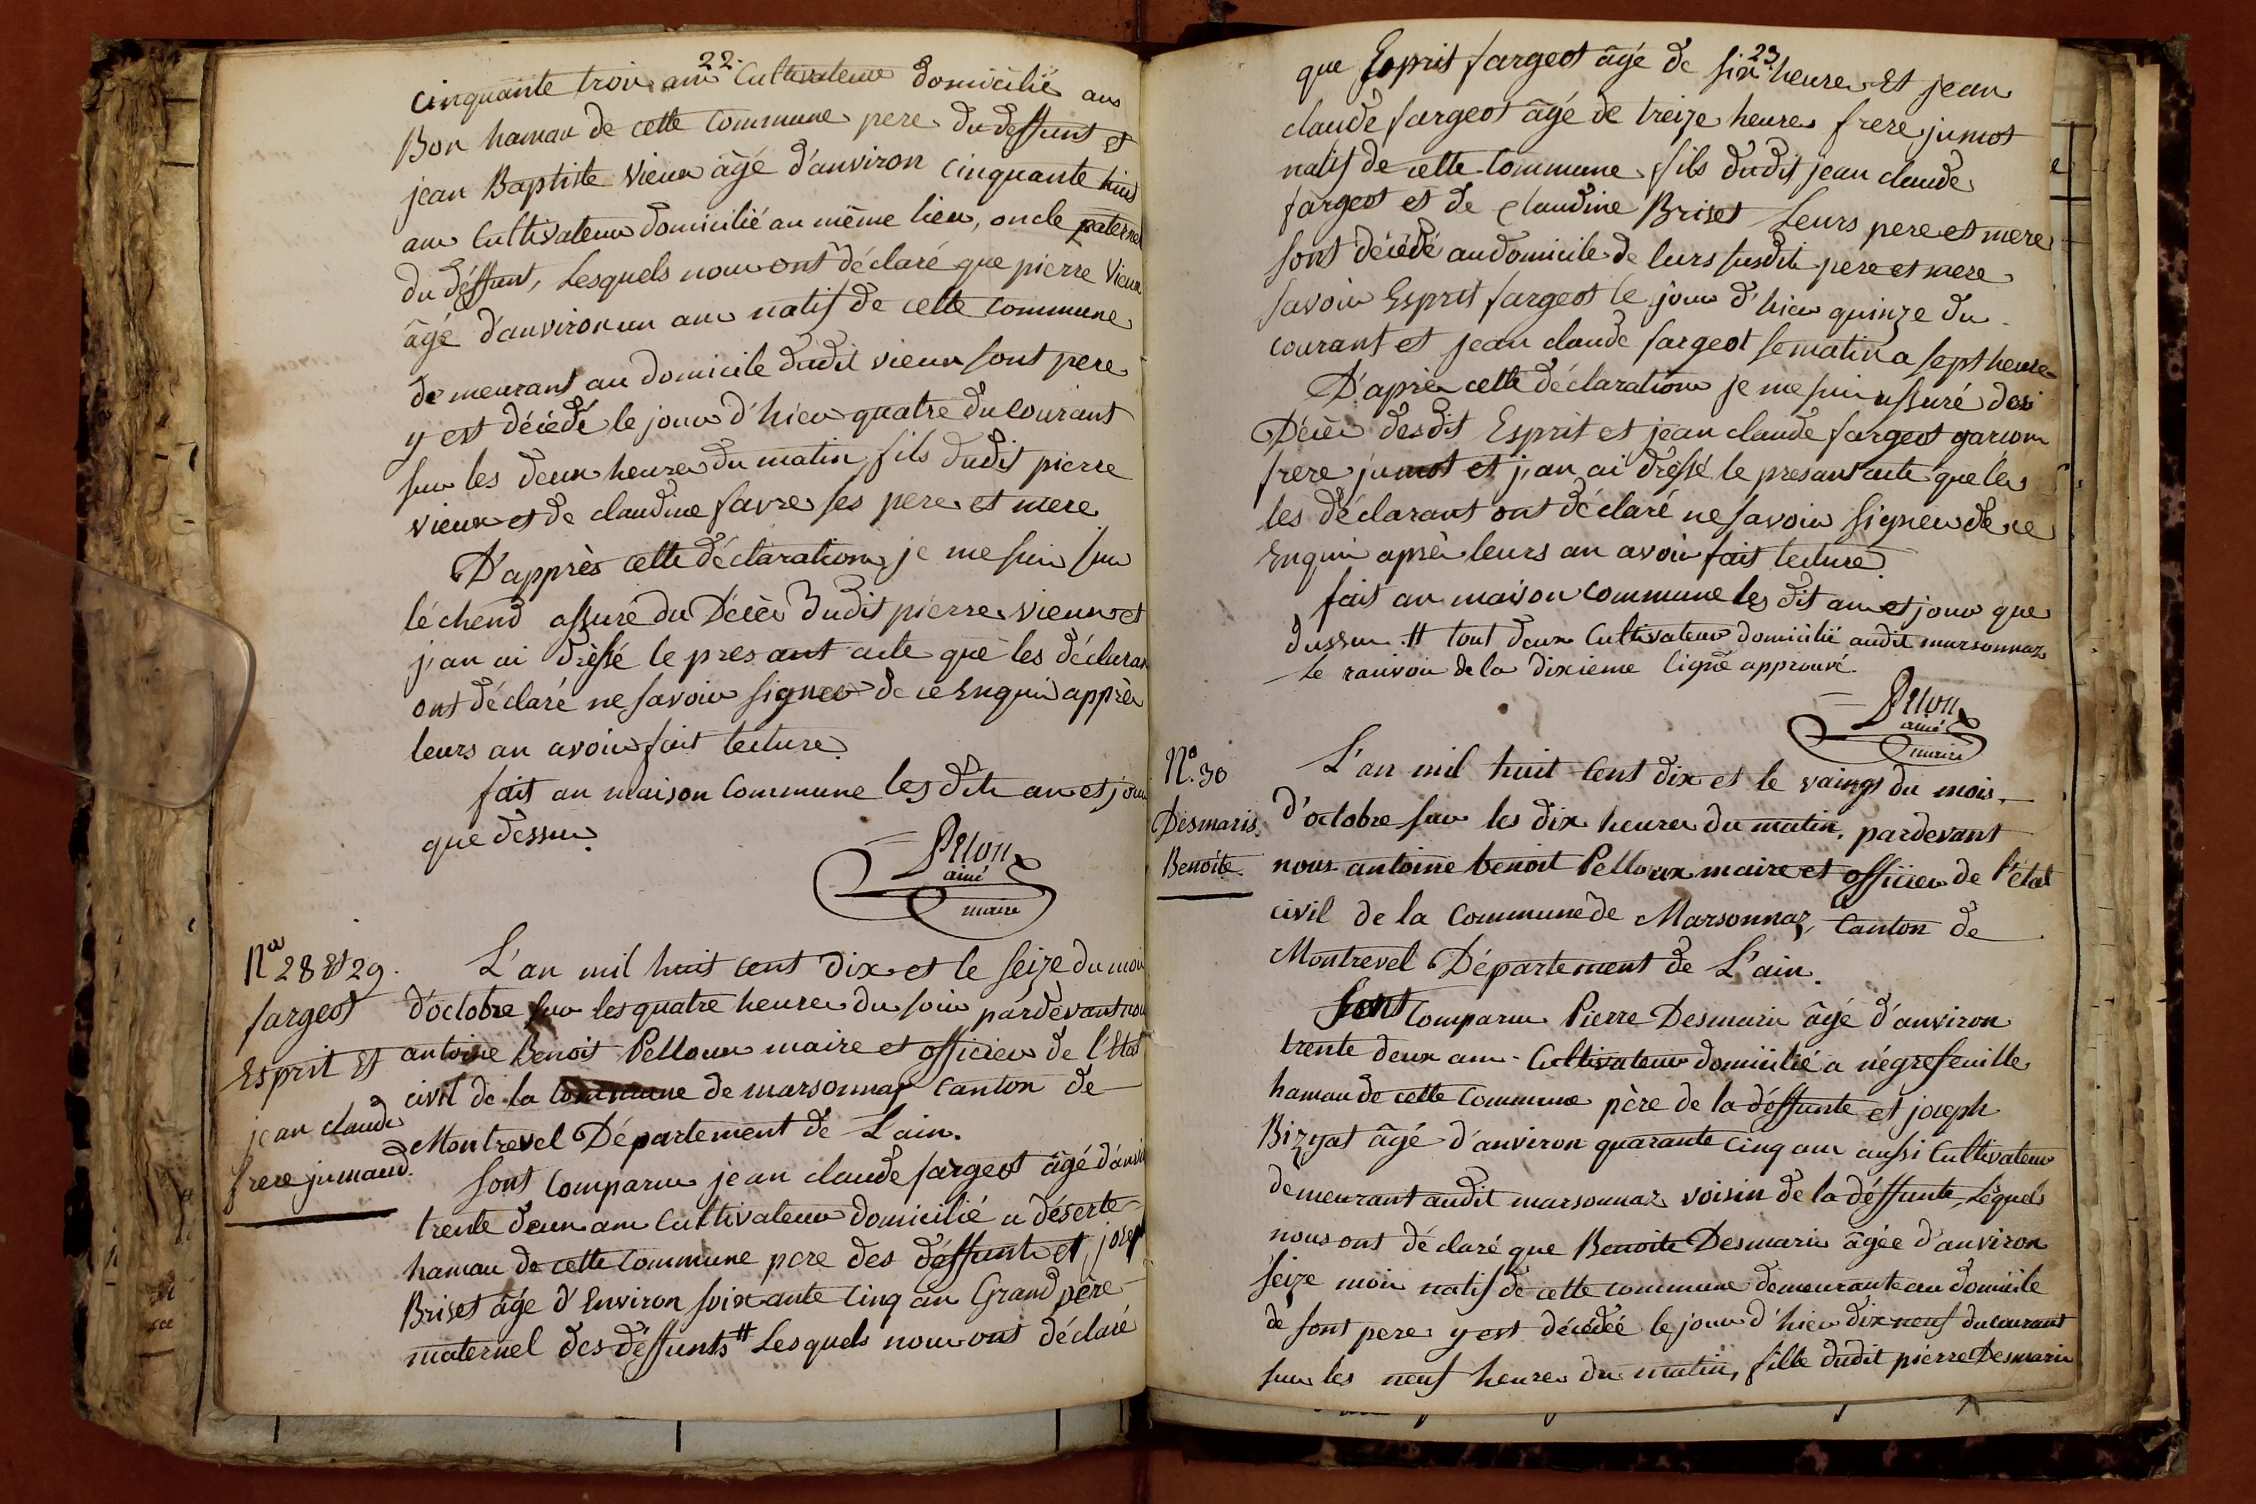 22.
cinquante trois ans Cultivateur domicilié aus
Bon hamau de cette Commune pere du deffunt et
jean Baptiste Vieux âgé d'anviron cinquante huit
ans Cultivateur domicilié au même lieu, oncle paternel
du déffunt, Lesquels nous ont déclaré que pierre Vieux
âgé d'anviron un ans natif de cette commune
demeurant au domicile dudit vieux sont pere
y est décédé le jour d'hier quatre du courant
sur les deux heures du matin, fils dudit pierre
vieux et de claudine favre ses pere et mere
D'apprès cette déclaration je me suis sur
léchend assuré du Décès dudit pierre vieux et
j'an ai drèssé le presant acte que les déclarant
ont déclaré ne savoir signer de ce Enquis apprès
leurs an avoir fait lecture.
fait an maison Commune les dits an et jour
que dessus.
Pelon
ainé
maire
Nos 28 et 29.
fargeot
Esprit Et
jean claude
frere jumaud.
L'an mil huit cent dix et le seize du mois
d'octobre sur les quatre heures du soir pardevant nous
antoine Benoit Pelloux maire et officier de l'Etat
civil de la Commune de marsonnas canton de
Montrevel Département de L'ain.
sont Comparus jean claude fargeot âgé d'anviron
trente deux ans Cultivateur domicilié a déserte
hamau de cette Commune pere des déffunts et joseph
Briset âgé d'Environ soixante cinq ans Grand père
maternel des déffunts # Lesquels nous ont déclaré
23.
que Esprit fargeot âgé de six heures Et jean
claude fargeot âgé de treize heures frere jumot
natif de cette Commune fils dudit jean claude
fargeot et de Claudine Briset Leurs pere et mere
sont décédé au domicile de leurs susdits pere et mere
savoir Esprit fargeot le jour d'hier quinze du
courant et jean claude fargeot se matin a sept heures
D'après cette déclaration je me suis assuré des
Décès desdit Esprit et jean claude fargeot garcons
frere jumot et j'an ai drèssé le presant acte que les
les déclarant ont déclaré ne savoir signer de ce
Enquis après leurs an avoir fait lecture.
fait an maison commune les dit an et jour que
dussus. # tout deux Cultivateur domicilié audit marsonnaz
Le ranvoi de la dixieme ligne approuvé.
Pelon
ainé
maire
No. 30
Desmaris.
Benoite.
L'an mil huit cent dix et le vaingt du mois
d'octobre sur les dix heures du matin, pardevant
nous antoine benoit Pelloux maire et officier de l'état
civil de la Commune de Marsonnaz, Canton de
Montrevel Département de L'ain.
Sont Comparus Pierre Desmaris âgé d'anviron
trente deux ans Cultivateur domicilié a négrefeuille
hamau de cette Commune père de la déffunte et joseph
Bizyat âgé d'anviron quarante cinq ans aussi Cultivateur
demeurant audit marsonnaz voisin de la déffunte, Lesquels
nous ont déclaré que Benoite Desmaris âgée d'anviron
seize mois natif de cette commune demeurante au domicile
de sont pere y est décédée le jour d'hier dix neuf du courant
sur les neuf heures du matin, fille dudit pierre Desmaris